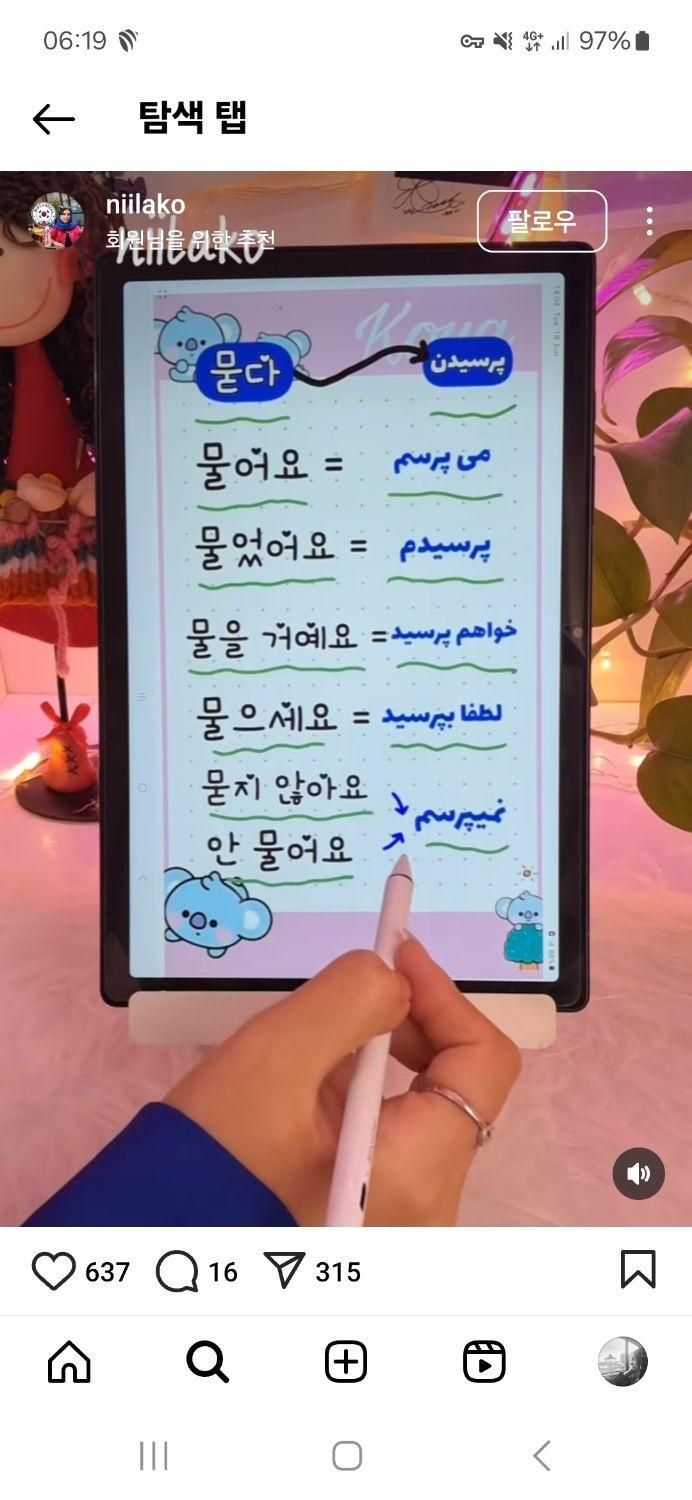 06:19
4G+ 97%
탐색 탭
niilako
회원님을 위한 추천
팔로우
niilako
14:04 Tue, 18 Jun
Koya
묻다 پرسیدن
물어요 = می پرسم
물었어요 = پرسیدم
물을 거예요 = خواهم پرسید
물으세요 = لطفا بپرسید
묻지 않아요
نمیپرسم
안 물어요
637 16 315